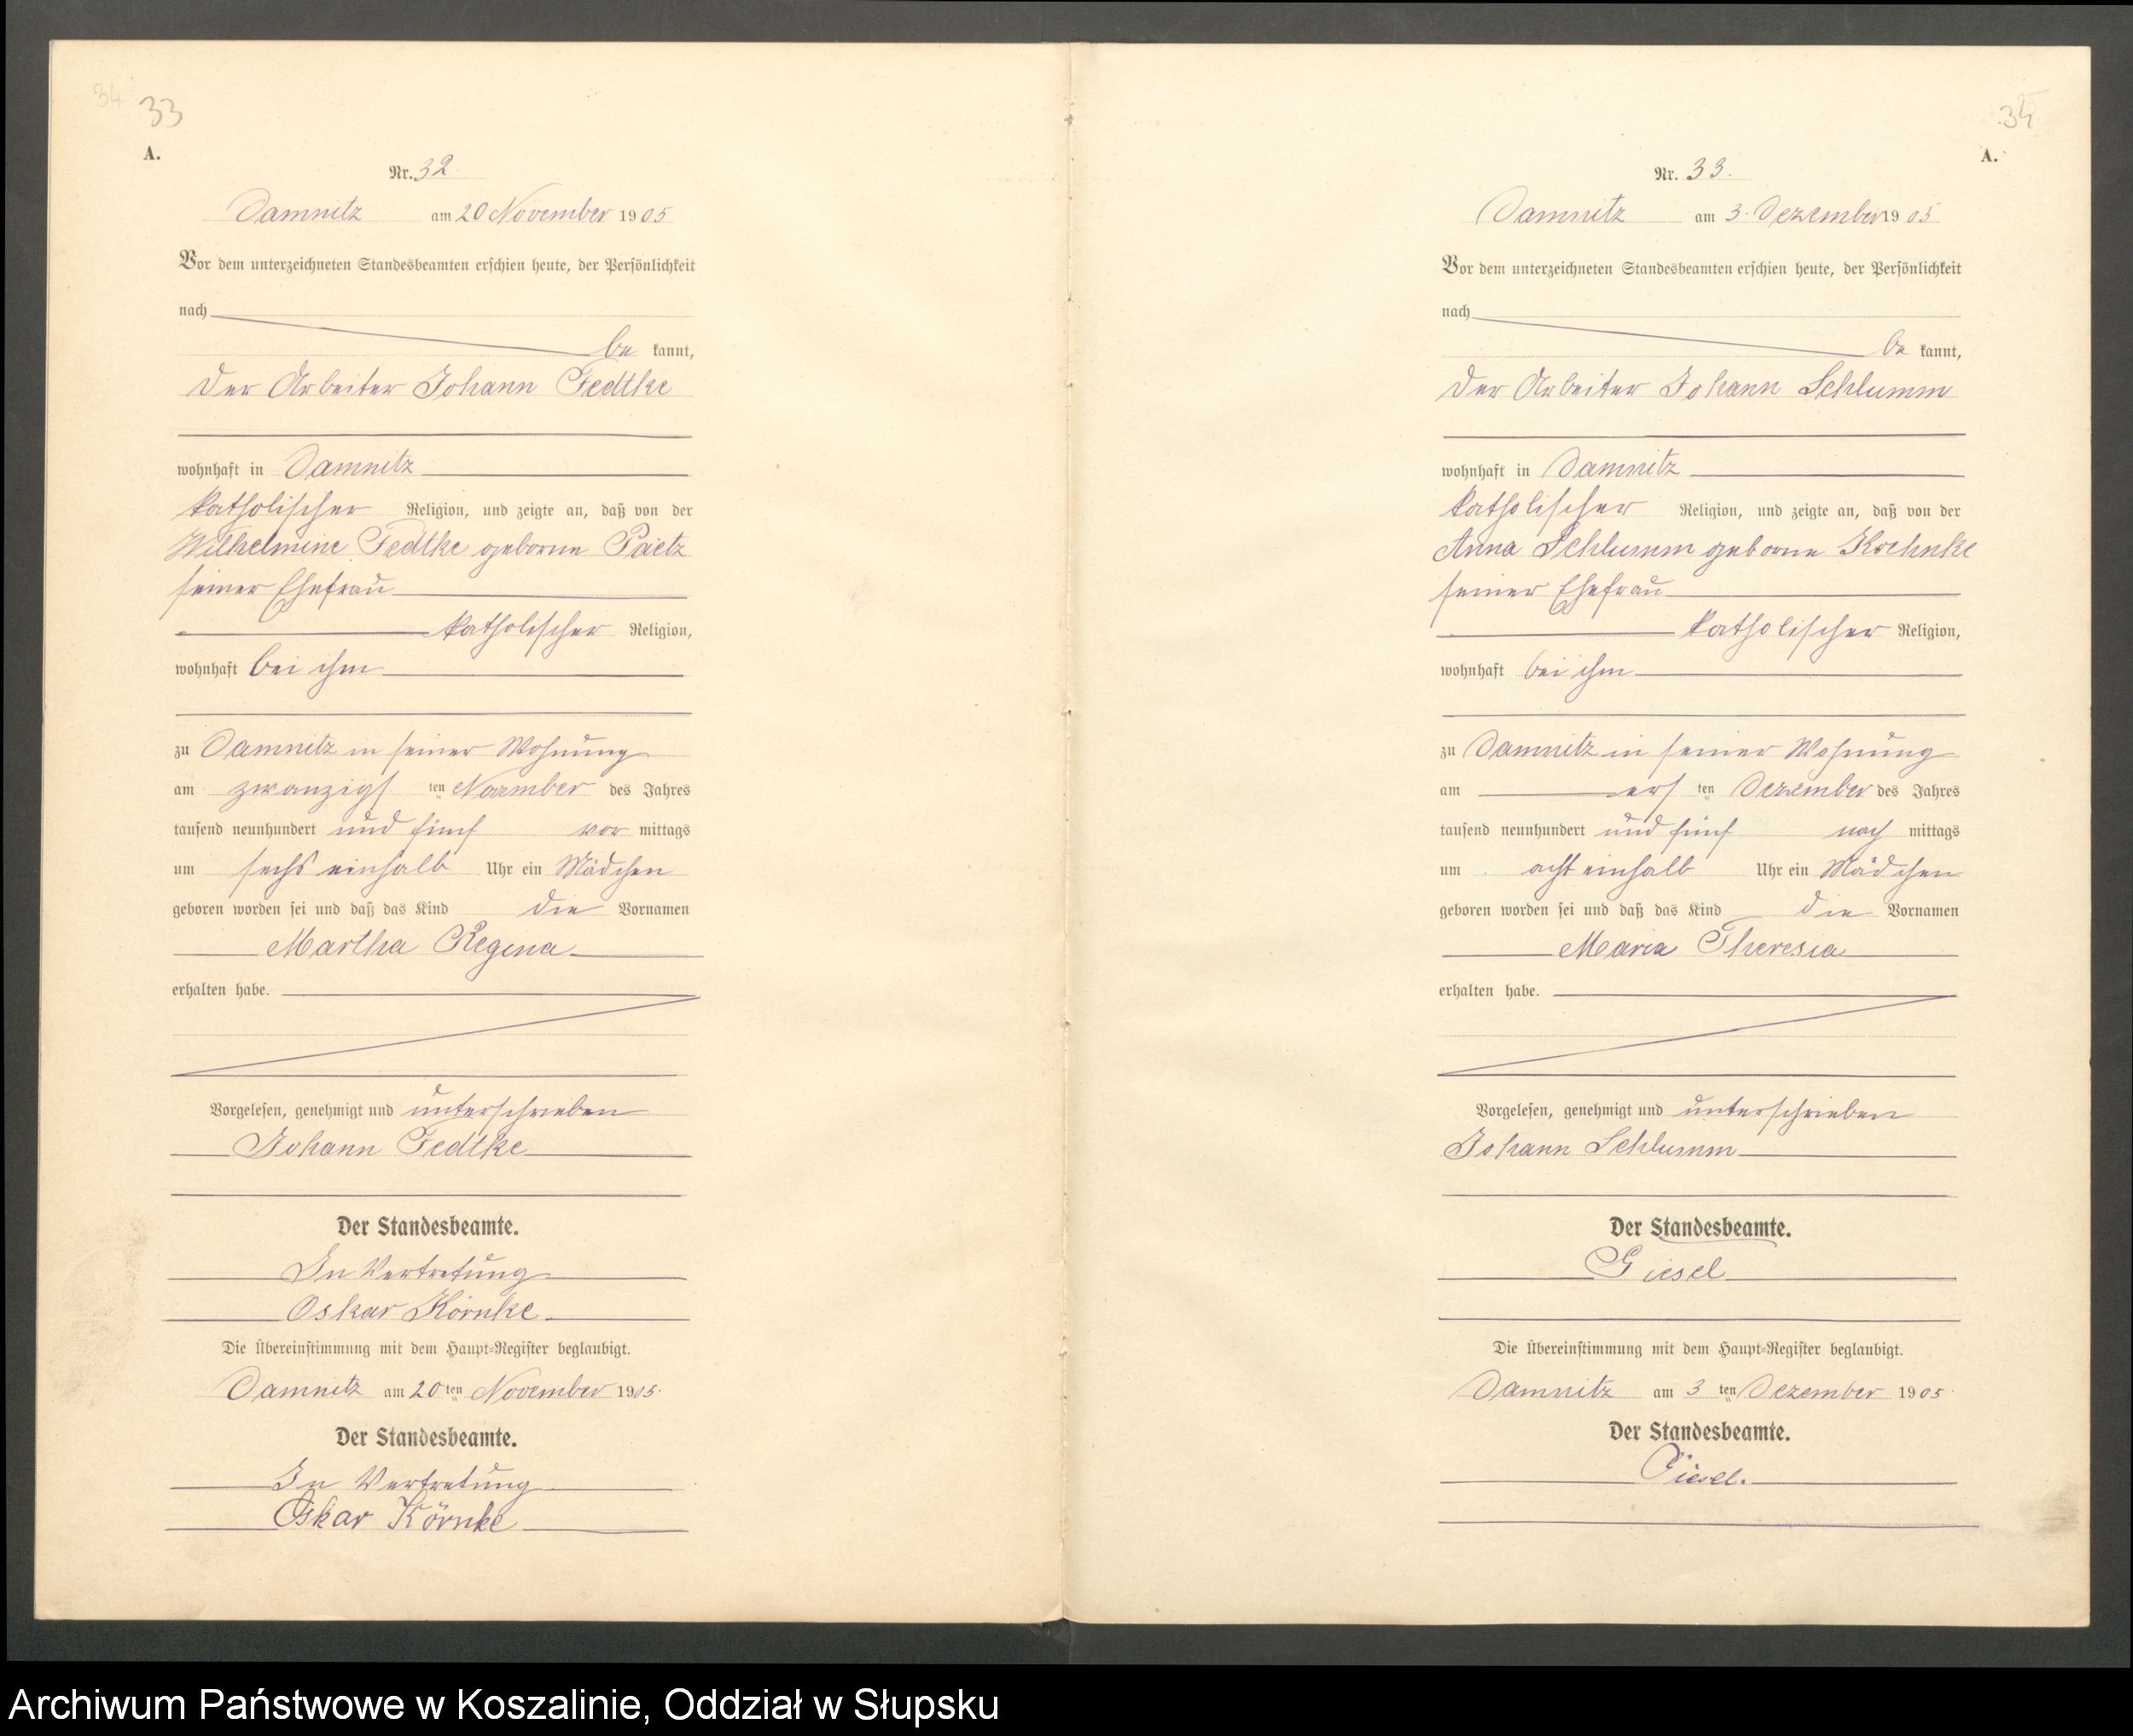 34 33
A.
Nr. 32
Damnitz am 20 November 1905
Vor dem unterzeichneten Standesbeamten erschien heute, der Persönlichkeit
nach
be kannt,
der Arbeiter Johann Fedtke
wohnhaft in Damnitz
katholischer Religion, und zeigte an, daß von der
Wilhelmine Fedtke geborne Paetz
seiner Ehefrau
katholischer Religion,
wohnhaft bei ihm
zu Damnitz in seiner Wohnung
am zwanzigs ten November des Jahres
tausend neunhundert und fünf vor mittags
um sechs einhalb Uhr ein Mädchen
geboren worden sei und daß das Kind die Vornamen
Martha Regina
erhalten habe.
Vorgelesen, genehmigt und unterschrieben
Johann Fedtke
Der Standesbeamte.
In Vertretung
Oskar Körnke
Die Übereinstimmung mit dem Haupt-Register beglaubigt.
Damnitz am 20 ten November 1905.
Der Standesbeamte.
In Vertretung
Oskar Körnke
A.
Nr. 33.
Damnitz am 3. Dezember 1905
Vor dem unterzeichneten Standesbeamten erschien heute, der Persönlichkeit
nach
be kannt,
der Arbeiter Johann Schlumm
wohnhaft in Damnitz
katholischer Religion, und zeigte an, daß von der
Anna Schlumm geborne Krehnke
seiner Ehefrau
katholischer Religion,
wohnhaft bei ihm
zu Damnitz in seiner Wohnung
am ers ten Dezember des Jahres
tausend neunhundert und fünf nach mittags
um acht einhalb Uhr ein Mädchen
geboren worden sei und daß das Kind die Vornamen
Maria Theresia
erhalten habe.
Vorgelesen, genehmigt und unterschrieben
Johann Schlumm
Der Standesbeamte.
Giesel
Die Übereinstimmung mit dem Haupt-Register beglaubigt.
Damnitz am 3 ten Dezember 1905.
Der Standesbeamte.
Giesel.
Archiwum Państwowe w Koszalinie, Oddział w Słupsku